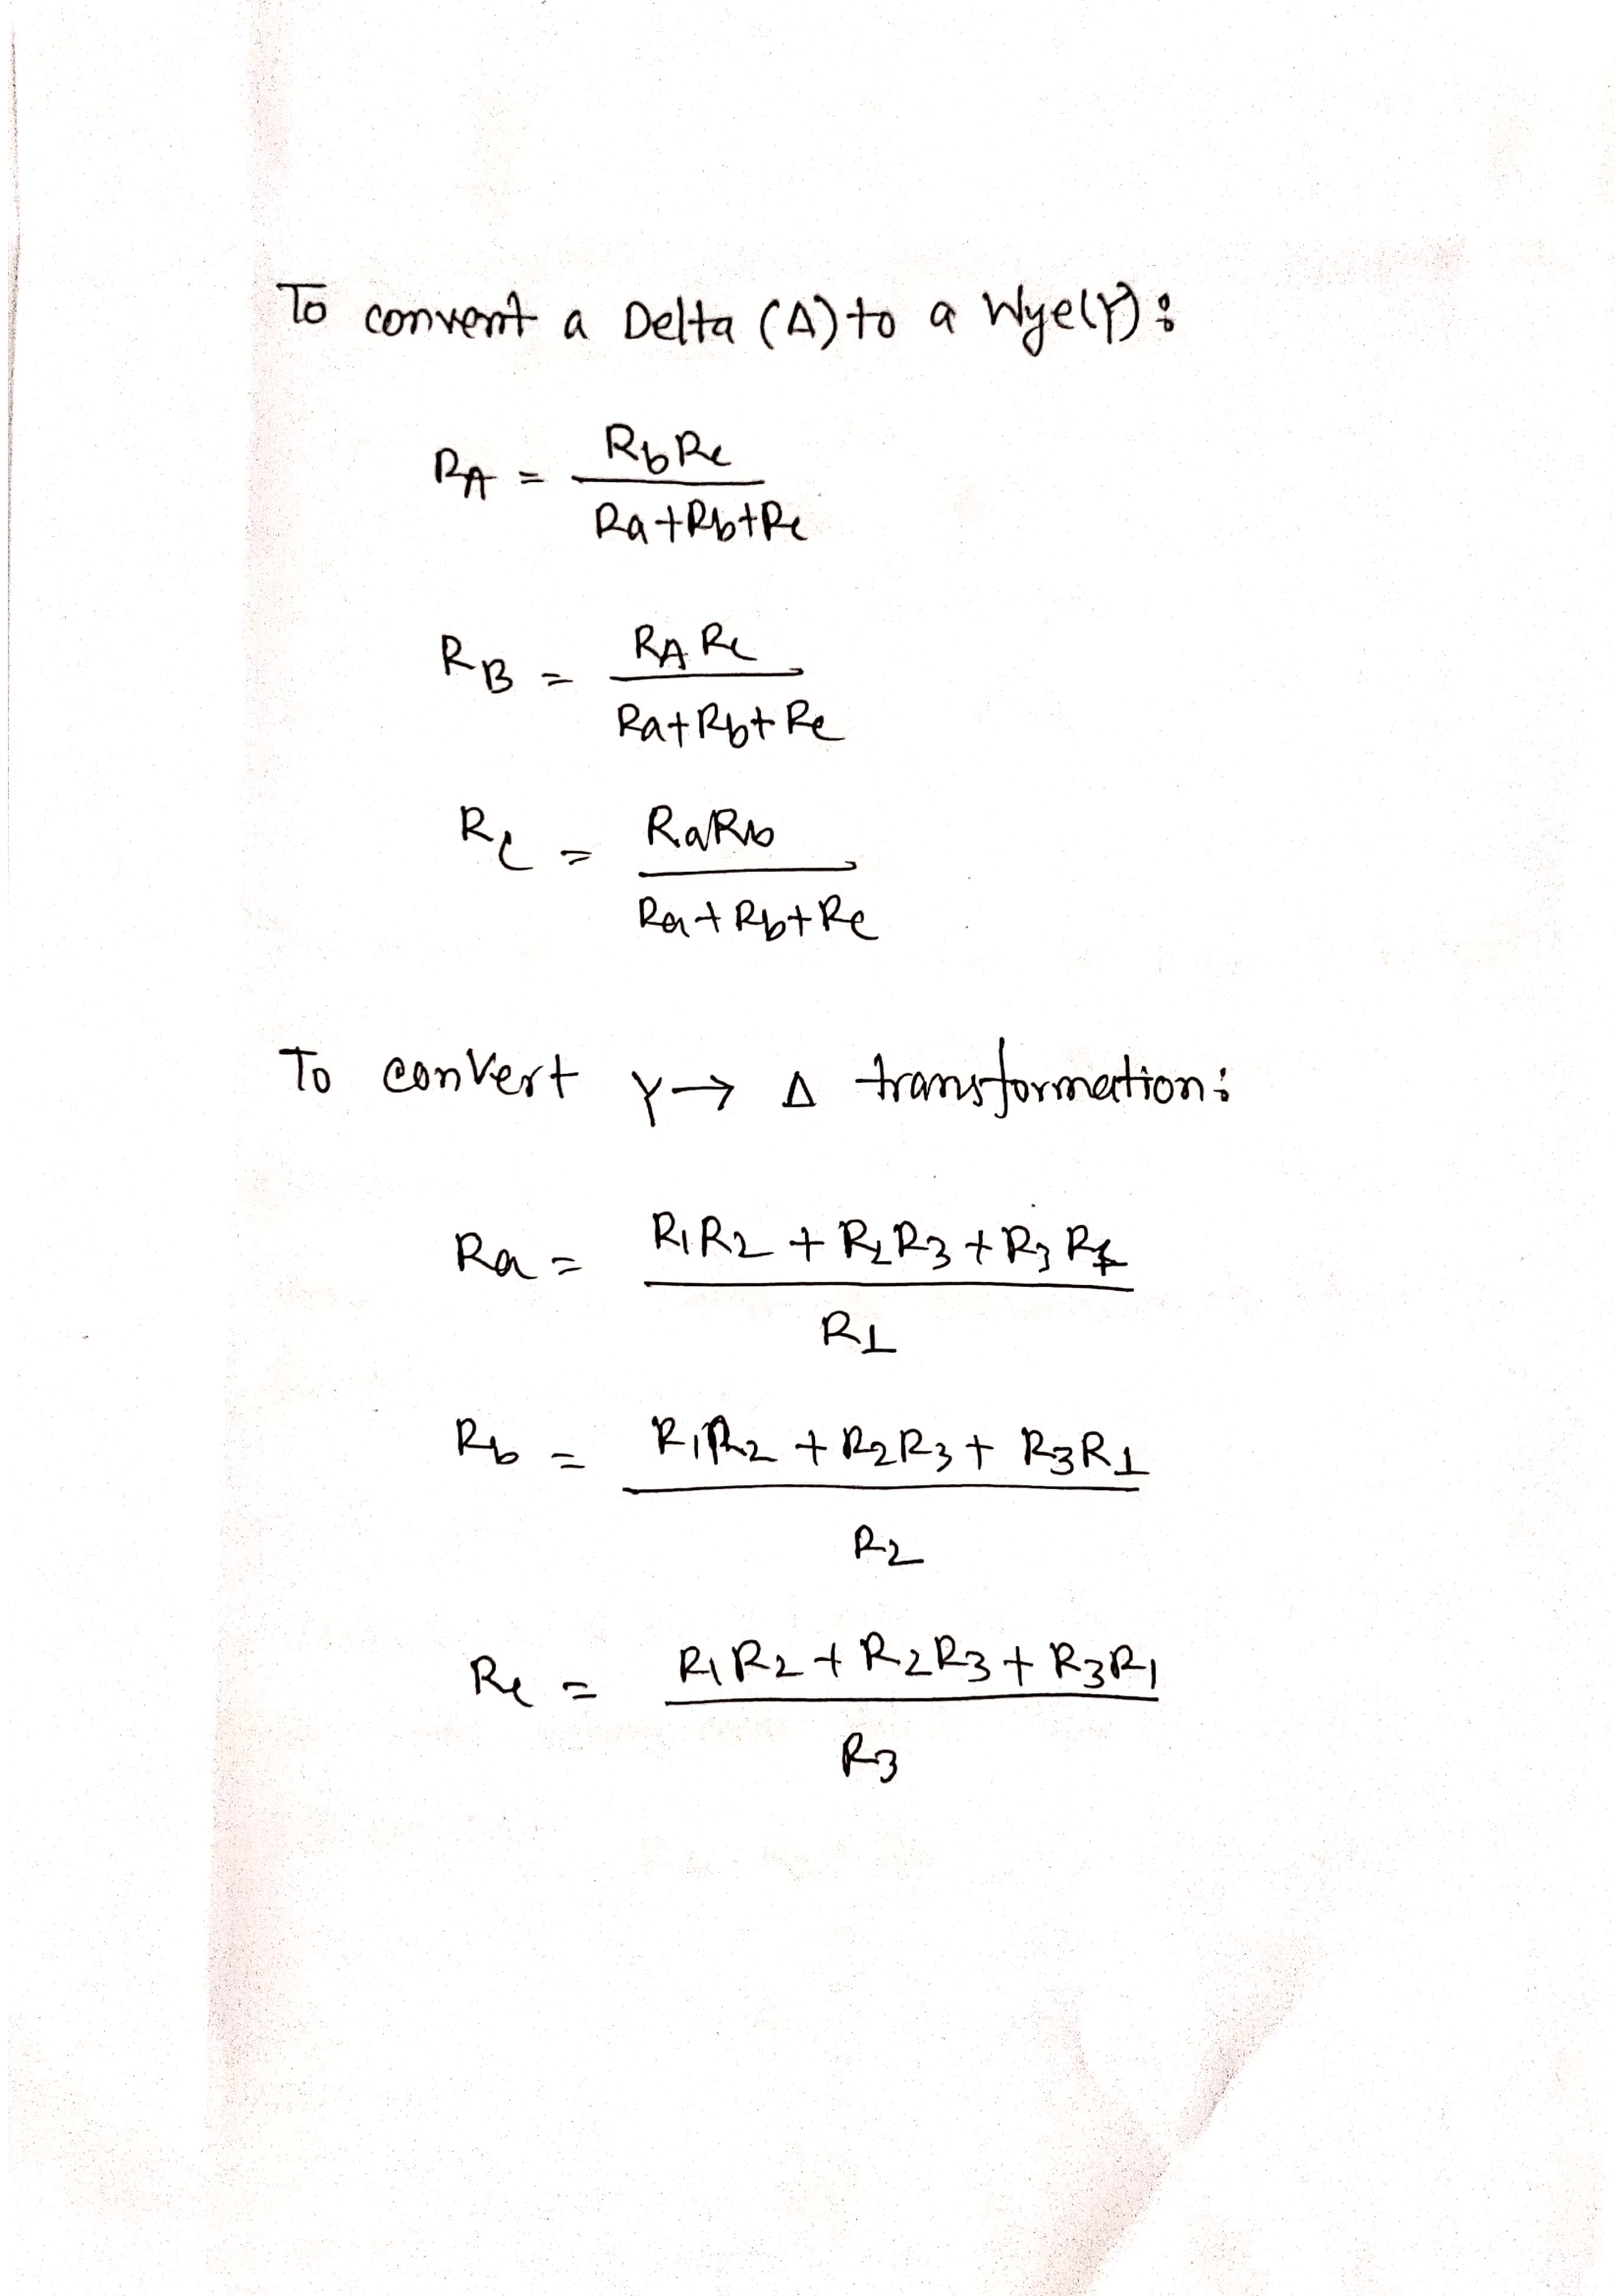 To convert a Delta (Δ) to a Wye(Y):
RA = RbRc / Ra+Rb+Rc
RB = RARc / Ra+Rb+Rc
RC = RaRb / Ra+Rb+Rc
To convert Y→ Δ transformation:
Ra = R1R2 + R2R3 + R3R1 / R1
Rb = R1R2 + R2R3 + R3R1 / R2
Rc = R1R2 + R2R3 + R3R1 / R3